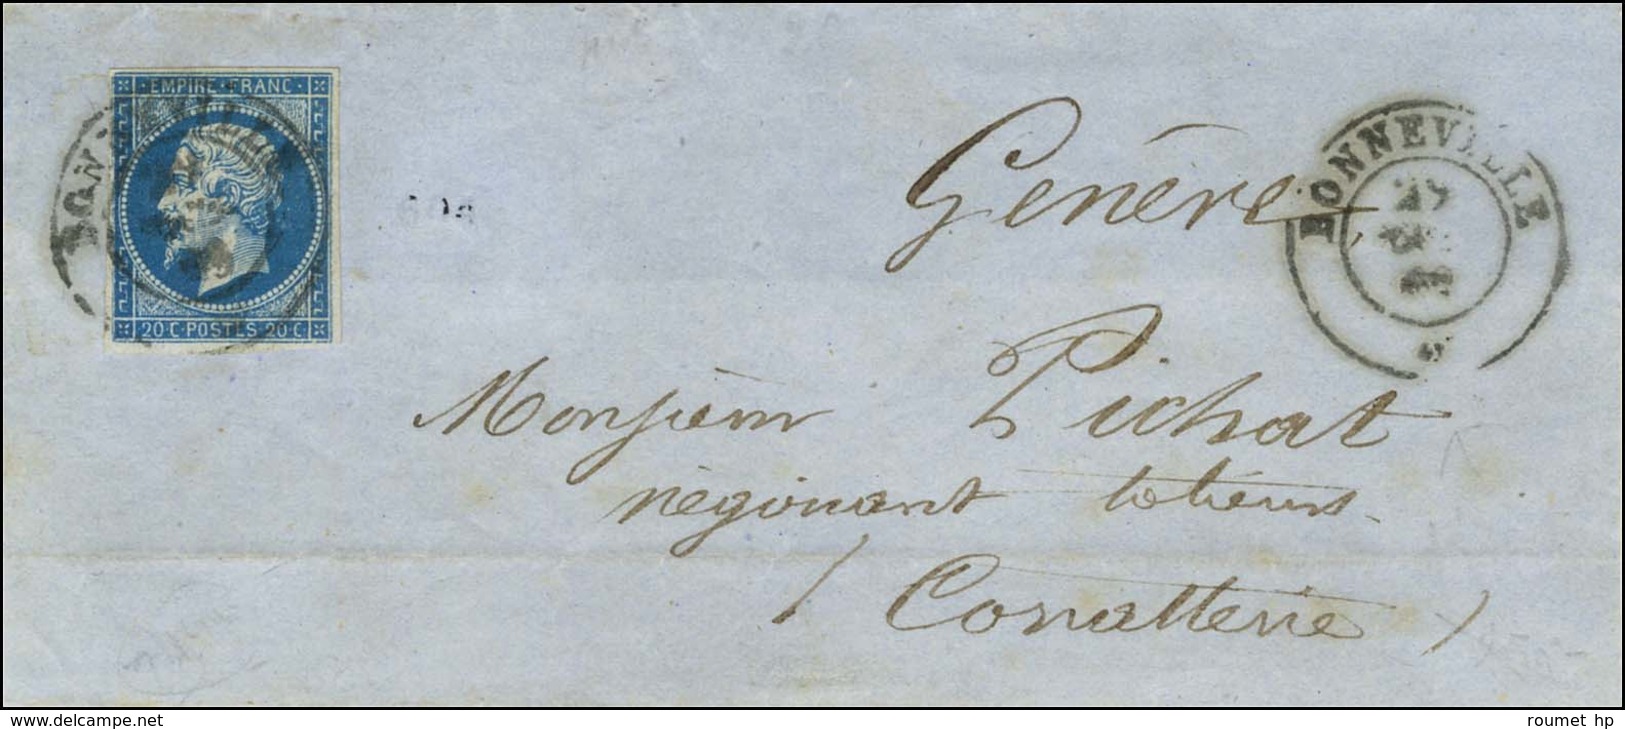 EMPIRE · FRANC
20 C · POSTES · 20 C
BONNEVILLE
Genève,
BONNEVILLE
28
Monsieur Pichat
négociant
( Corratterie )
www.delcampe.net
roumet hp